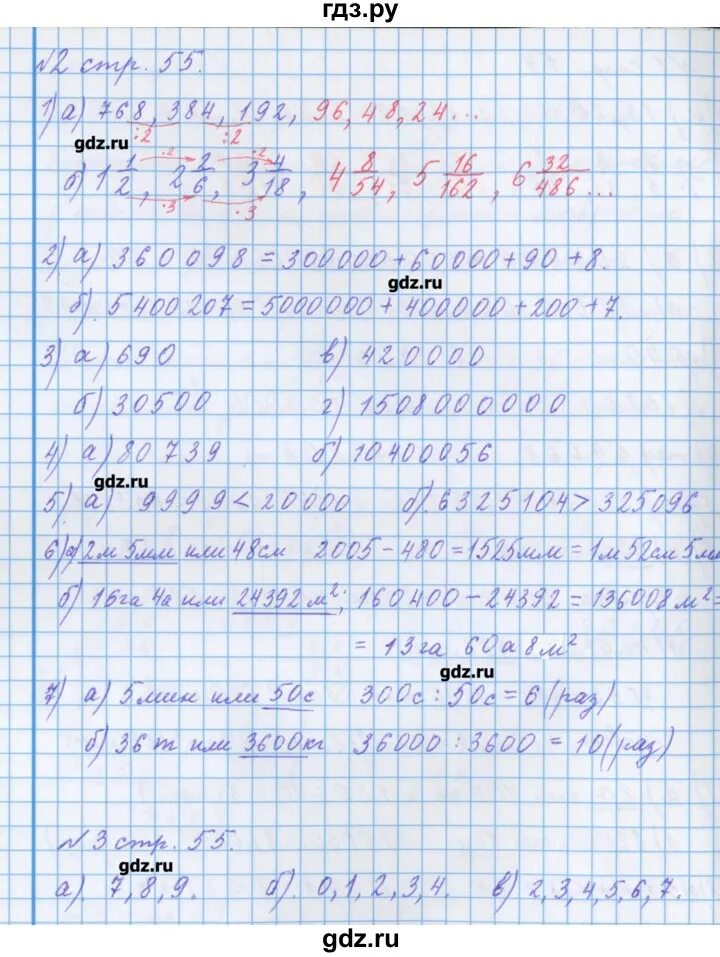 гдз.ру
№2 стр. 55.
1) а) 768, 384, 192, 96, 48, 24...
:2 :2
gdz.ru
·2 ·2
б) 1 1/2, 2 2/6, 3 4/18, 4 8/54, 5 16/162, 6 32/486...
·3 ·3
2) а) 360 098 = 300000 + 60000 + 90 + 8.
gdz.ru
б). 5 400 207 = 5000000 + 400000 + 200 + 7.
3) а) 690 в) 420000
б) 30500 г) 1508000000
4) а) 80 739 б) 10400056
gdz.ru
5) а) 9999 < 20000 б) 6325104 > 325096
6) а) 2м 5мм или 48см 2005 - 480 = 1525мм = 1м 52см 5мм
б) 16га 4а или 24392 м²; 160400 - 24392 = 136008 м² =
= 13га 60а 8м²
gdz.ru
7) а) 5мин или 50с 300с : 50с = 6 (раз)
б) 36 т или 3600кг 36000 : 3600 = 10 (раз)
№3 стр. 55.
gdz.ru
а). 7, 8, 9. б). 0, 1, 2, 3, 4. в) 2, 3, 4, 5, 6, 7.
gdz.ru